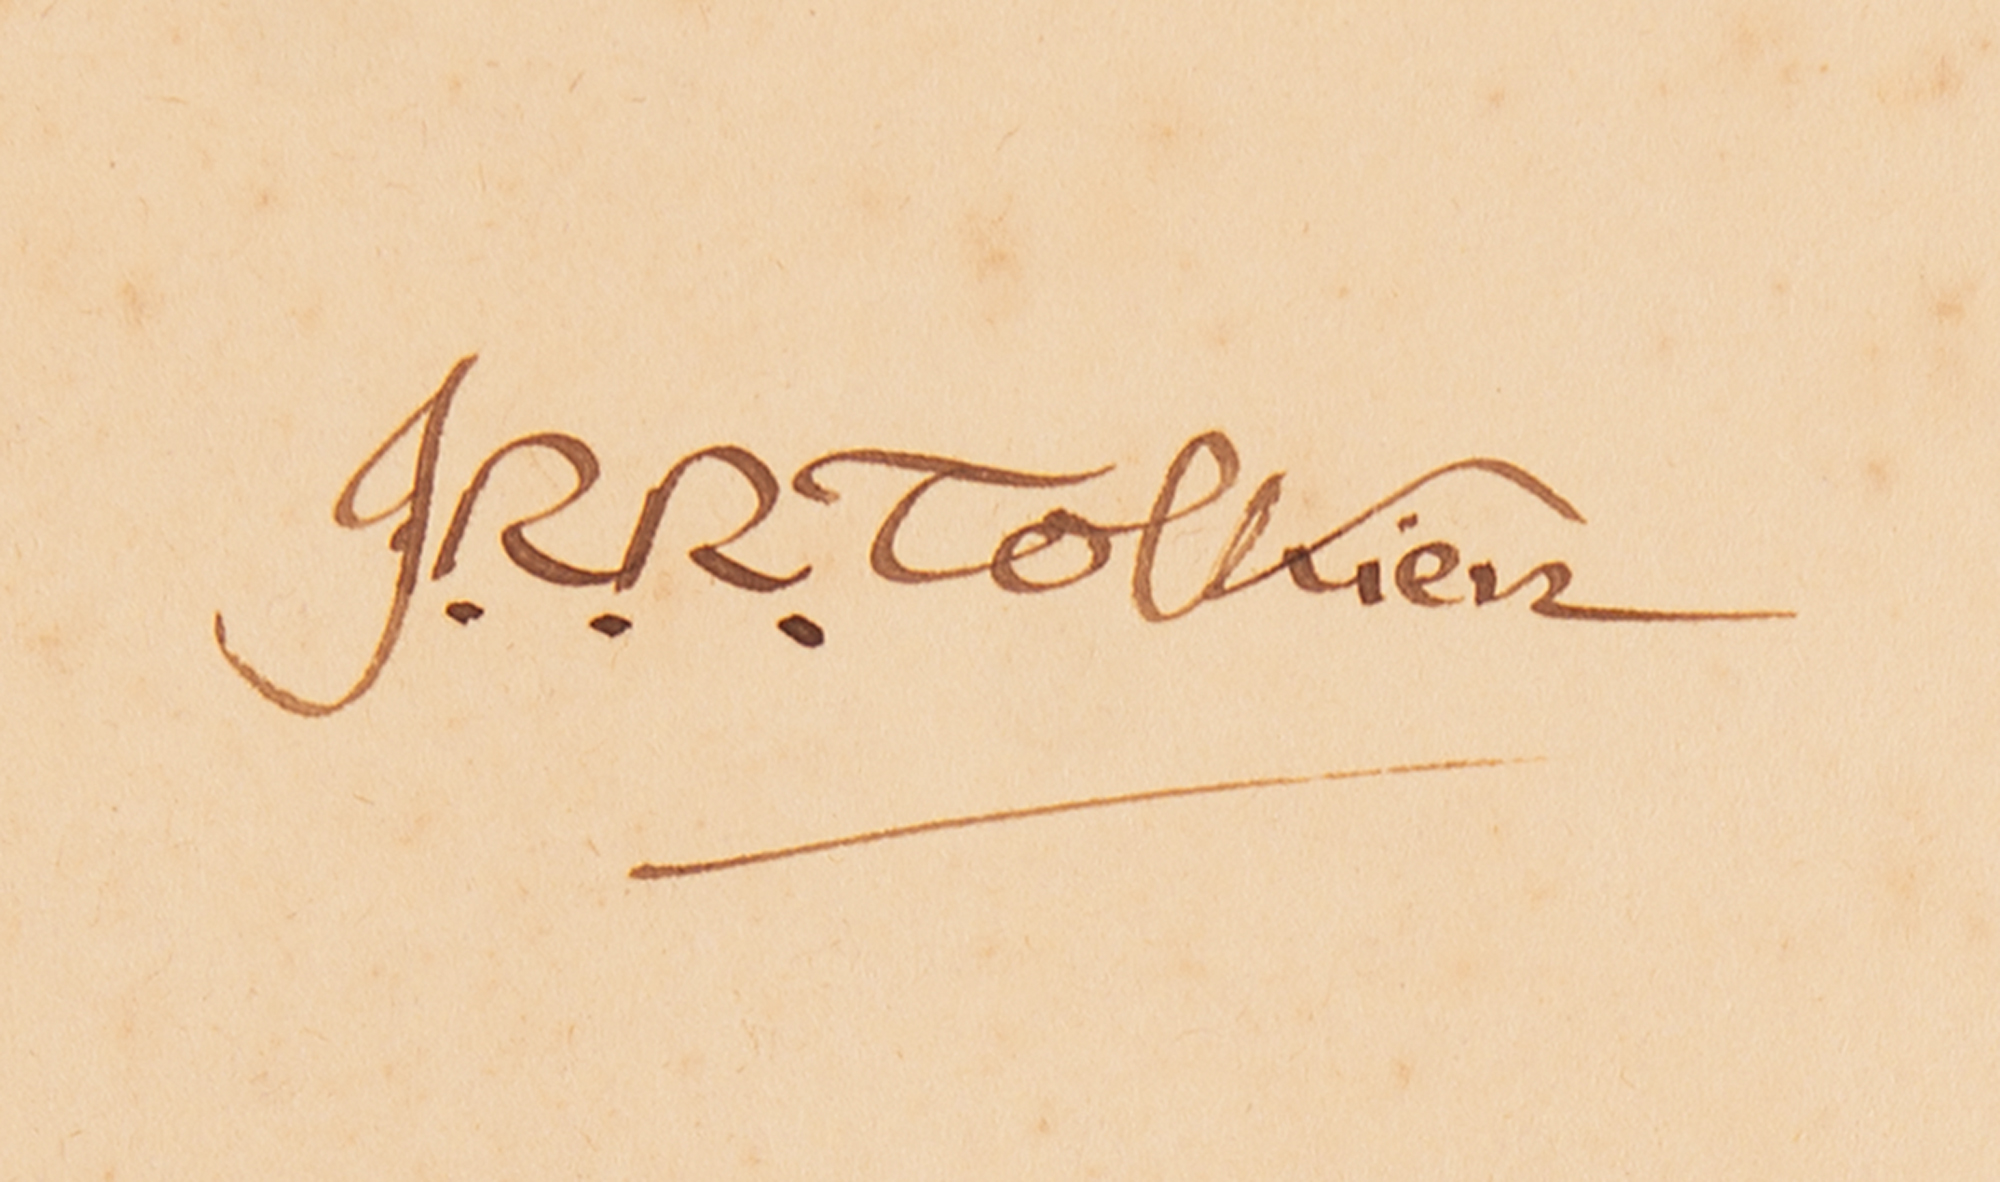 J.R.R. Tolkien